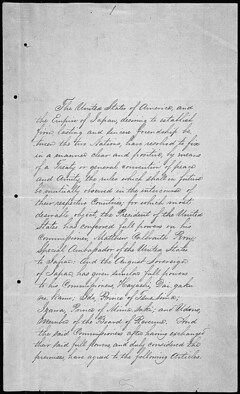 The United States of America, and
the Empire of Japan, desiring to establish
firm, lasting and sincere friendship be
tween the two Nations, have resolved to fix
in a manner clear and positive, by means
of a Treaty or general convention of peace
and Amity, the rules which shall in future
be mutually observed in the intercourse of
their respective Countries; for which most
desirable object, the President of the United
States has conferred full powers on his
Commissioner, Matthew Calbraith Perry
Special Ambassador of the United States
to Japan: And the August Sovereign
of Japan, has given similar full powers
to his Commissioners, Hayashi, Dai-gaku
no kami; Ido, Prince of Tsus-Sima;
Izawa, Prince of Mima-saki; and Udono,
Member of the Board of Revenue. And
the said Commissioners after having exchanged
their said full powers, and duly considered the
premises, have agreed to the following Articles.